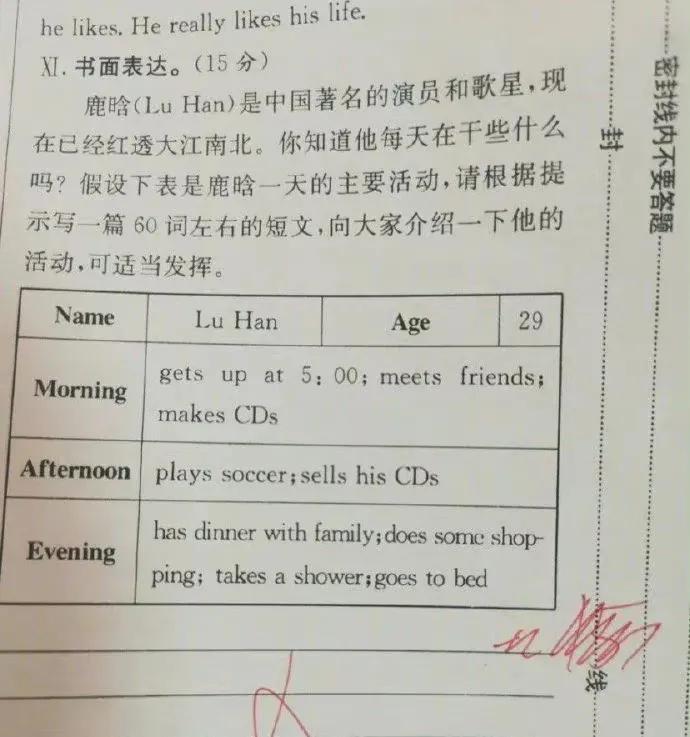 he likes. He really likes his life.
Ⅺ. 书面表达。(15 分)
鹿晗(Lu Han)是中国著名的演员和歌星,现
在已经红透大江南北。你知道他每天在干些什么
吗? 假设下表是鹿晗一天的主要活动,请根据提
示写一篇 60 词左右的短文,向大家介绍一下他的
活动,可适当发挥。
Name Lu Han Age 29
Morning
gets up at 5: 00; meets friends;
makes CDs
Afternoon plays soccer;sells his CDs
Evening
has dinner with family;does some shop-
ping; takes a shower;goes to bed
密封线内不要答题
封
线